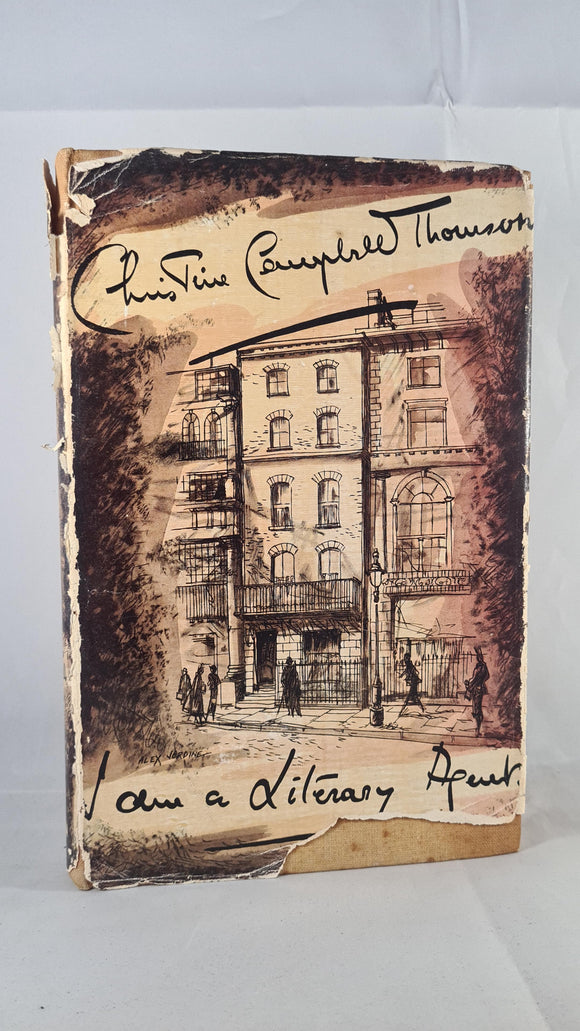 Christine Campbell Thomson
ALEX JARDINE
I am a Literary Agent.